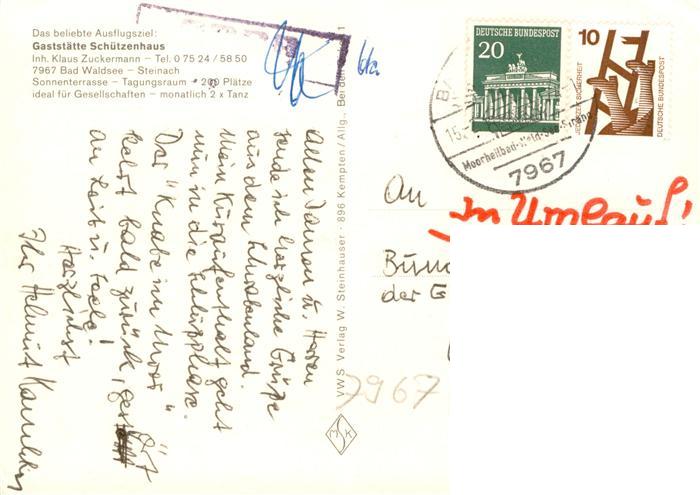 Das beliebte Ausflugsziel:
Gaststätte Schützenhaus
Inh. Klaus Zuckermann – Tel. 0 75 24 / 58 50
7967 Bad Waldsee – Steinach
Sonnenterrasse – Tagungsraum – 200 Plätze
ideal für Gesellschaften – monatlich 2 x Tanz
DEUTSCHE BUNDESPOST
20
10
JEDERZEIT SICHERHEIT
DEUTSCHE BUNDESPOST
Moorheilbad
7967
An
In Umlauf!
der G
7967
VWS Verlag W. Steinhauser · 896 Kempten / Allg., Bei der
1
Allen Damen u. Herren
sende ich herzliche Grüße
aus dem Schwabenland.
Mein Kuraufenthalt geht
nun in die Schlußphase.
Der "Knabe im Moor"
kehrt bald zurück,
an Leib u. Seele!
Herzlichst
Ihr Helmut